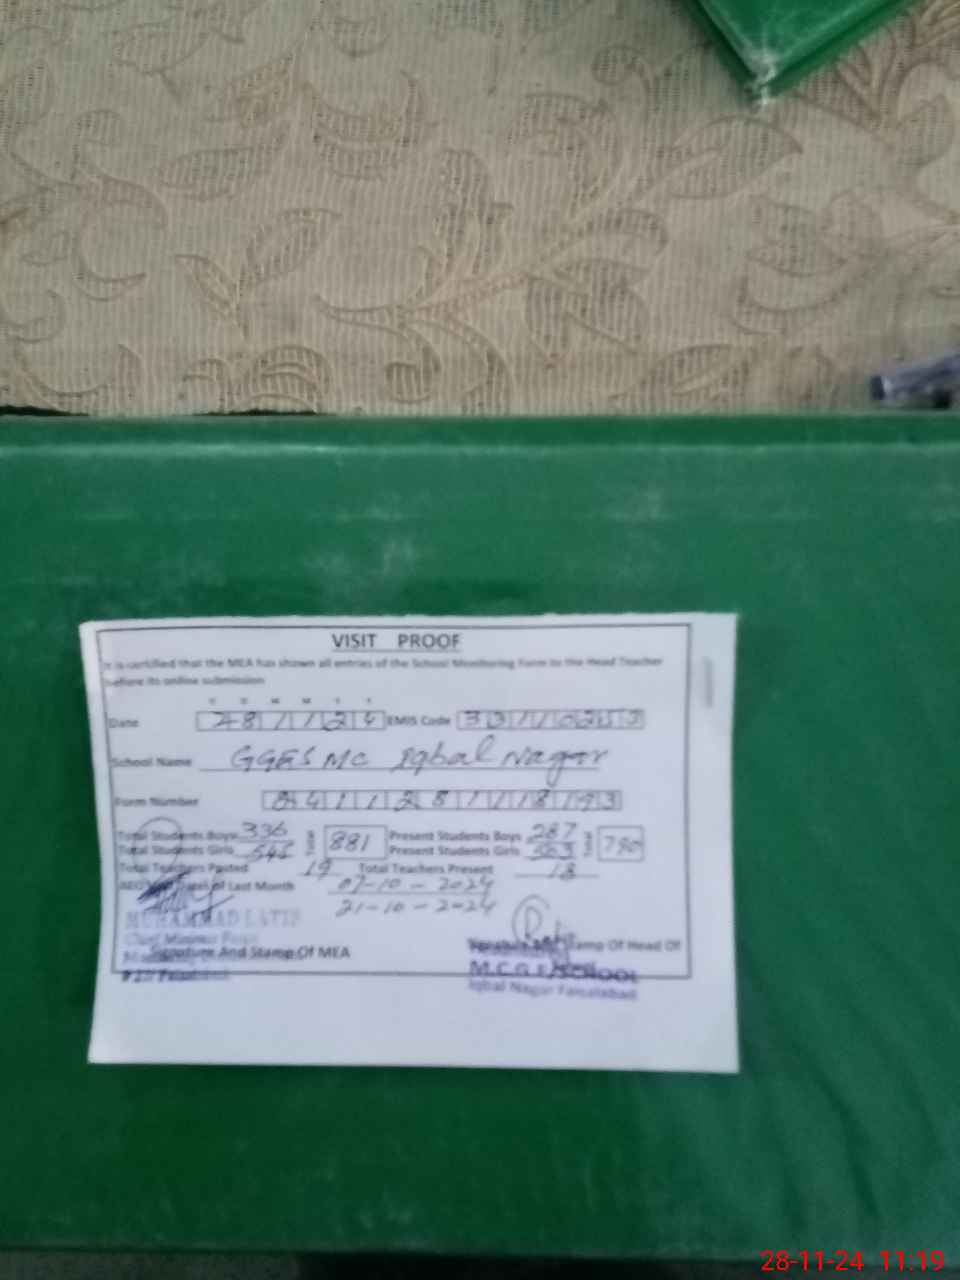 VISIT PROOF
It is certified that the MEA has shown all entries of the School Monitoring Form to the Head Teacher
before its online submission
D D M M Y Y
Date 281124 EMIS Code 33110253
School Name GGES MC Iqbal Nagar
Form Number
Total Students Boys 336 Total 881 Present Students Boys 287 Total 790
Total Students Girls 545 Present Students Girls 503
Total Teachers Posted 19 Total Teachers Present 18
Dates of Last Month 07-10-2024
21-10-2024
MUHAMMAD LATIF
Signature And Stamp Of MEA
Signature And Stamp Of Head Of
M.C.G.E/SCHOOL
Iqbal Nagar Faisalabad
28-11-24 11:19